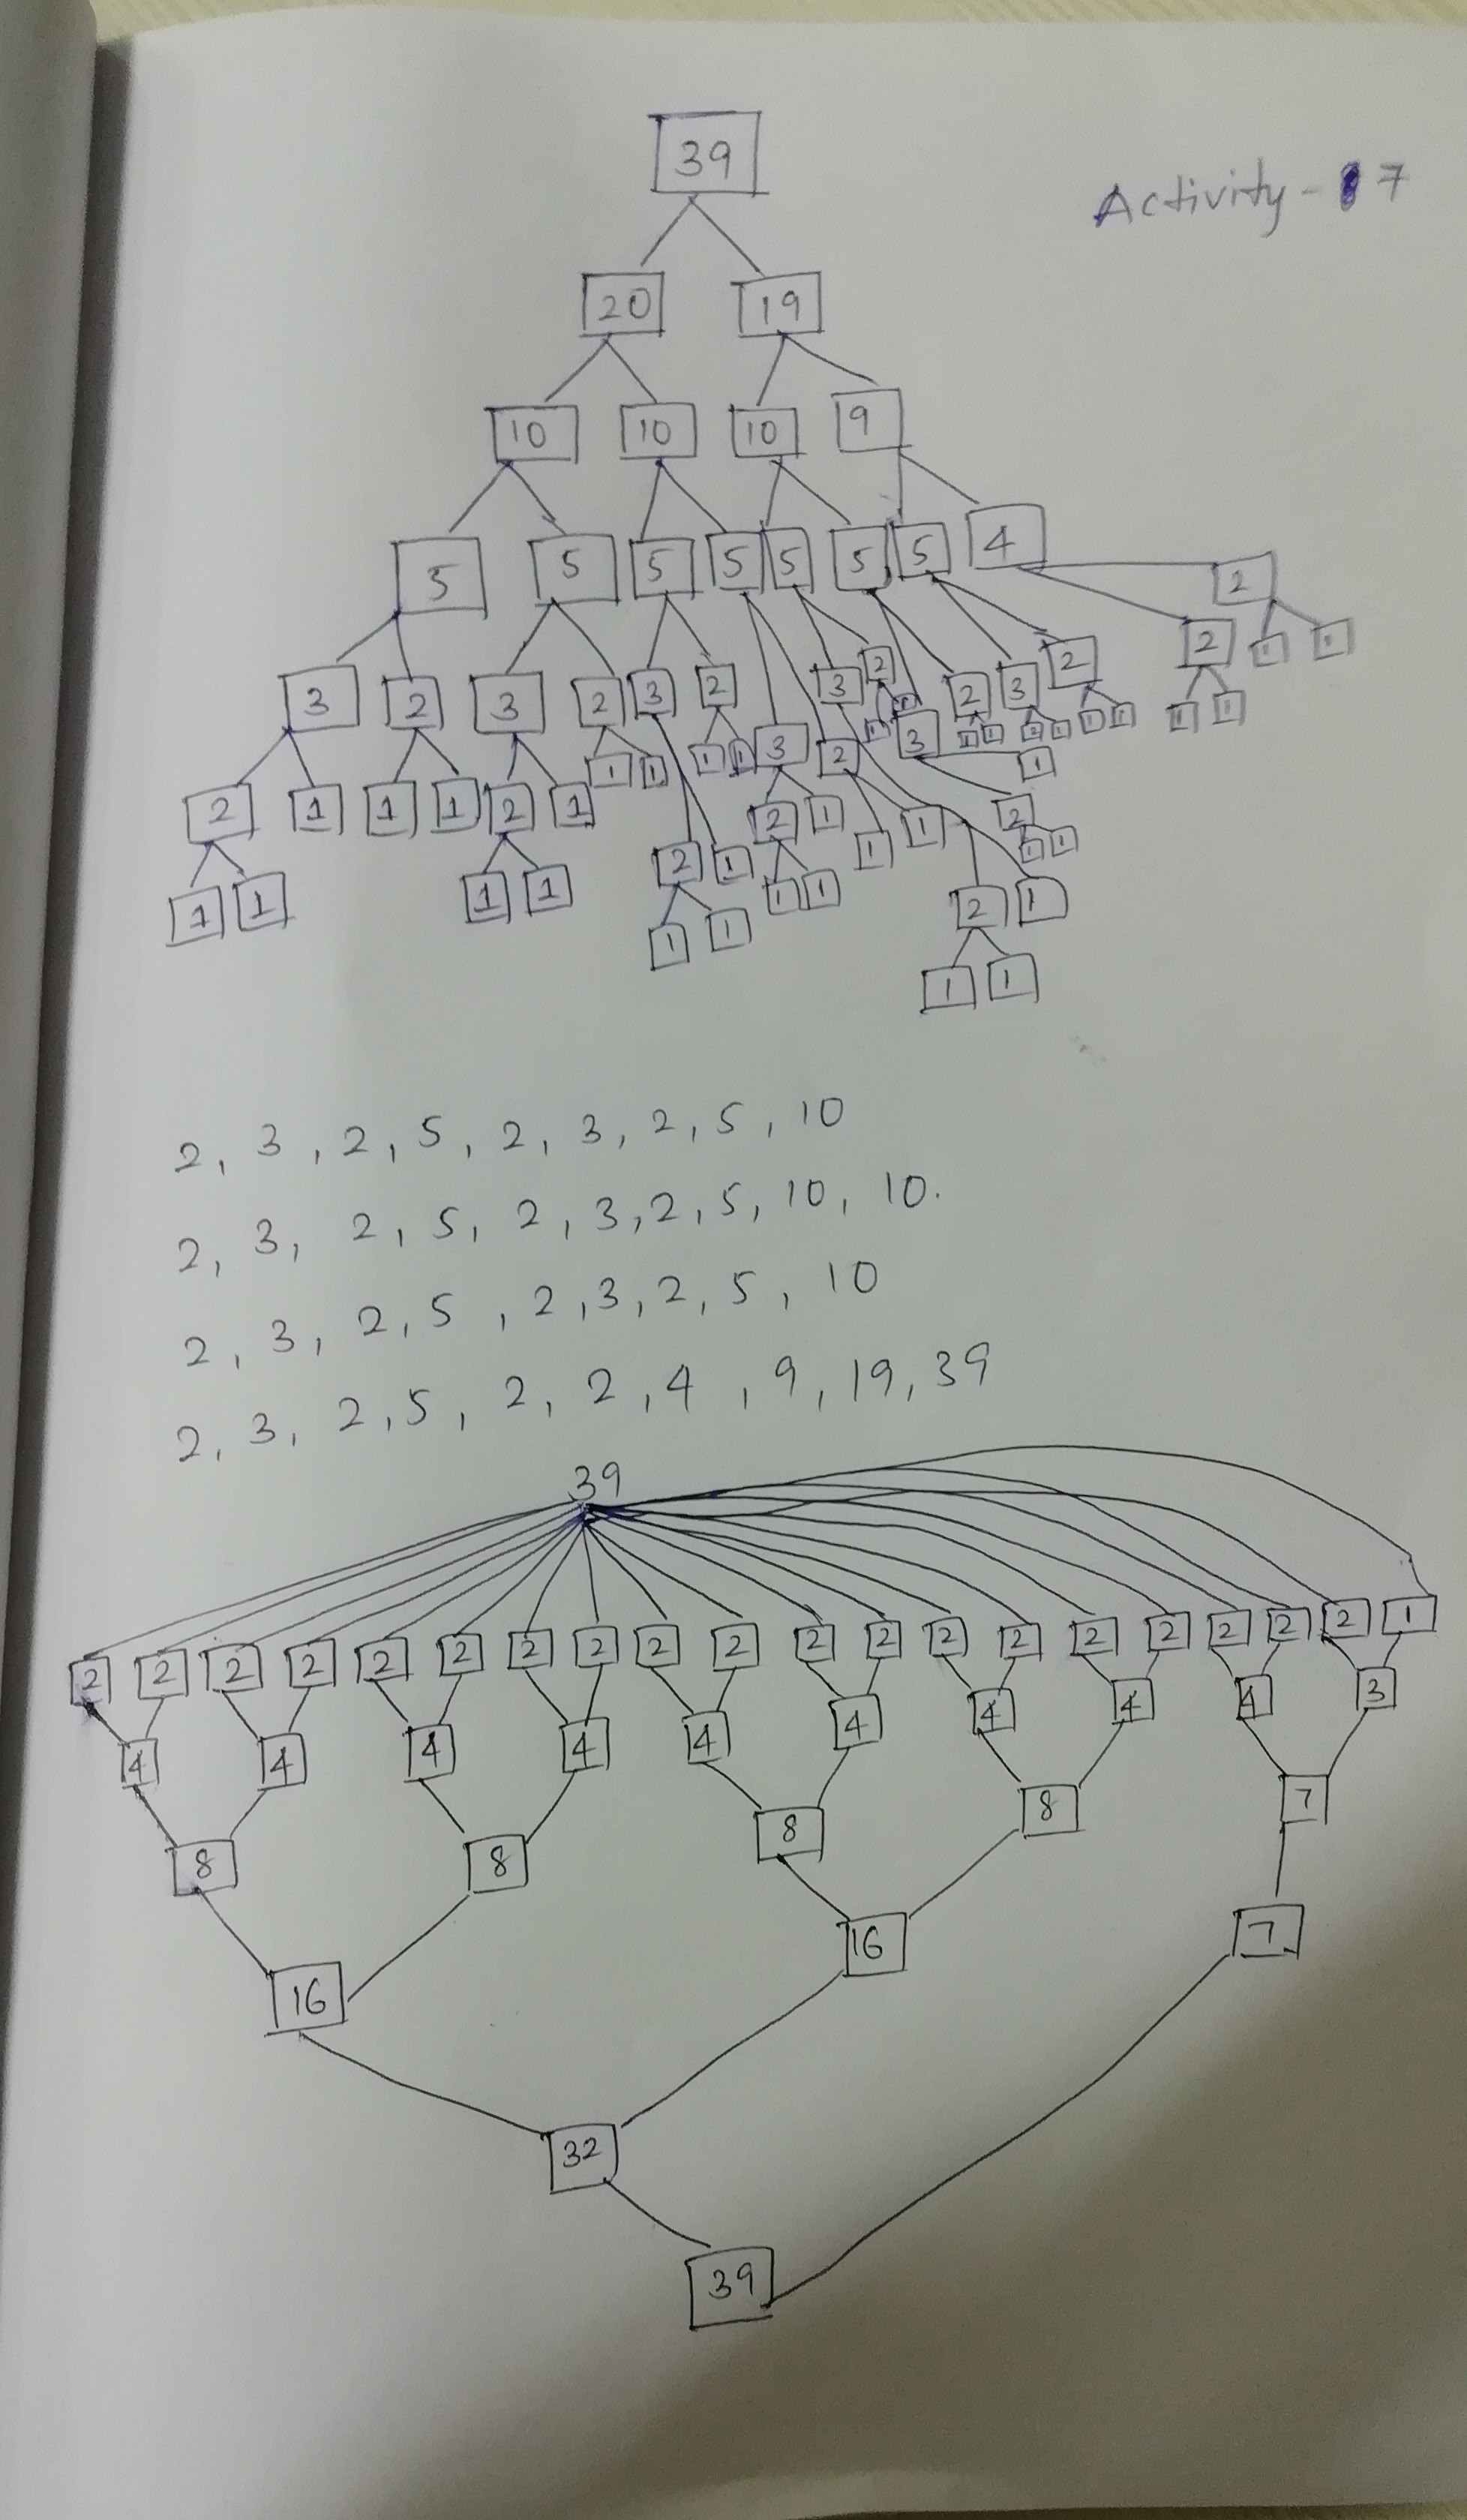 39
Activity - 7
20 19
10 10 10 9
5 5 5 5 5 5 5 4
2
3 2 3 2 3 2 3 2 2 3 2 2 1 1
1 1 3 2 1 3 1 1 1 1 1 1 1
2 1 1 1 2 1 1 1 1 1 1
2 1 2 1 1 1 2 1 1
1 1 1 1 1 1 2 1
1 1
1 1
2, 3, 2, 5, 2, 3, 2, 5, 10
2, 3, 2, 5, 2, 3, 2, 5, 10, 10.
2, 3, 2, 5, 2, 3, 2, 5, 10
2, 3, 2, 5, 2, 2, 4, 9, 19, 39
39
2 2 2 2 2 2 2 2 2 2 2 2 2 2 2 2 2 2 2 1
4 4 4 4 4 4 4 4 4 3
8 8 8 8 7
16 16 7
32
39